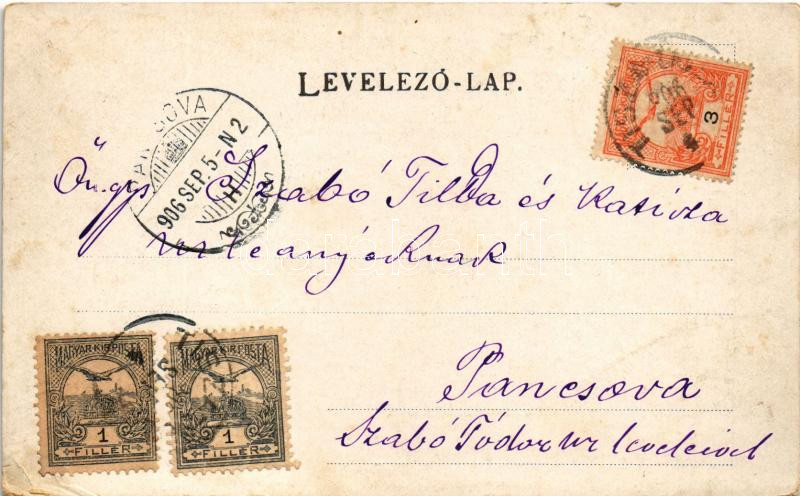 LEVELEZŐ-LAP.
PANCSOVA
906 SEP. 5-N 2
H
906
SEP
4
3
FILLÉR
Öngs Szabó Tilba és Katicza
urleányoknak
MAGYAR KIR. POSTA
1
FILLÉR
MAGYAR KIR. POSTA
1
FILLÉR
Pancsova
Szabó Tódor ur leveleivel